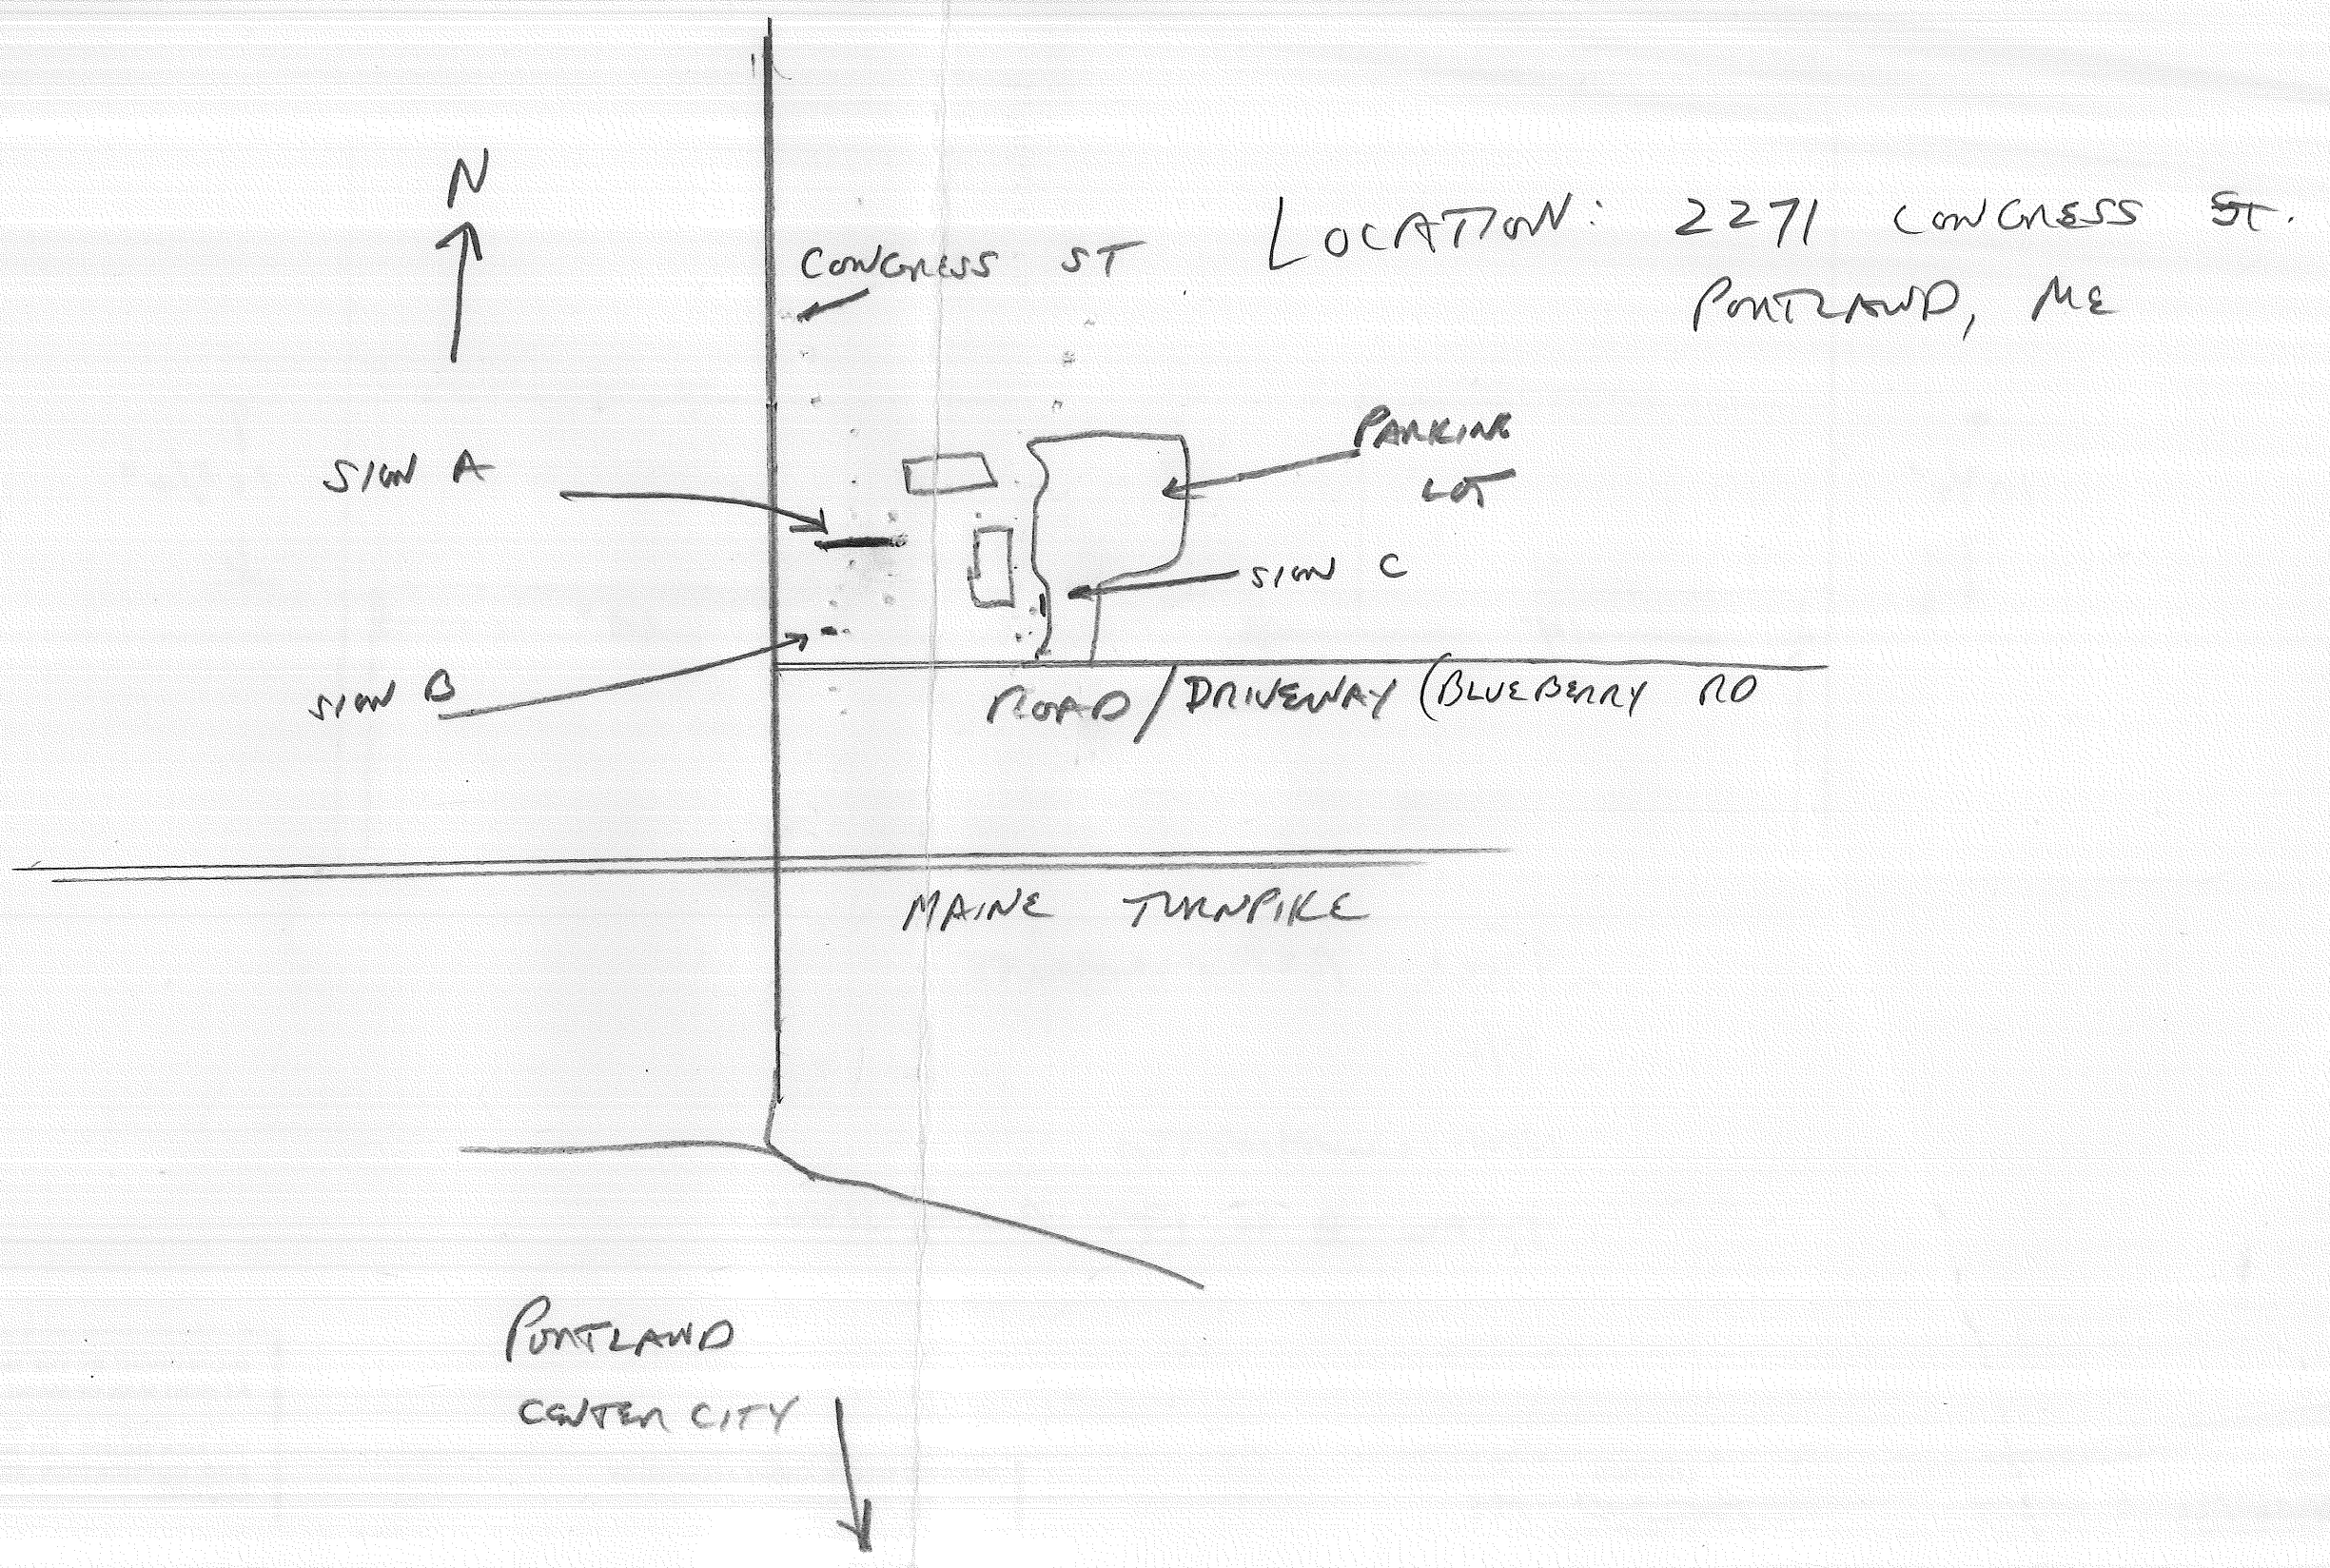 N
CONGRESS ST
LOCATION: 2271 CONGRESS ST.
PORTLAND, ME
SIGN A
PARKING
LOT
SIGN C
SIGN B
ROAD/DRIVEWAY (BLUEBERRY RD
MAINE TURNPIKE
PORTLAND
CENTER CITY